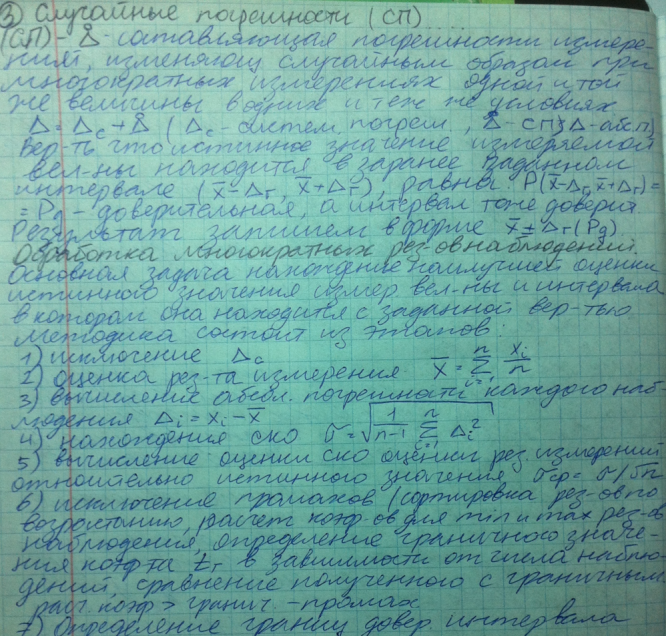 ③ Случайные погрешности (СП)
(СП) Δ̊ - составляющая погрешности измере-
ния, изменяющ случайным образом при
многократных измерениях одной и той
же величины в одних и тех же условиях
Δ = Δc + Δ̊ (Δc - систем. погреш, Δ̊ - СП, Δ - абс.п)
Вер-ть что истинное значение измеряемой
вел-ны находится в заранее заданном
интервале (x̄ - Δг, x̄ + Δг), равны: P(x̄-Δг, x̄+Δг)=
= Pд - доверительная, а интервал тоже доверит
Результат запишем в форме x̄ ± Δг (Pд)
Обработка многократных рез-ов наблюдений.
Основная задача нахождение наилучшей оценки
истинного значения измер. вел-ны и интервала
в котором она находится с заданной вер-тью
Методика состоит из этапов:
1) исключение Δc
2) оценка рез-та измерения x̄ = Σⁿᵢ₌₁ xᵢ/n
3) вычисление абсол. погрешности каждого наб-
людения Δᵢ = xᵢ - x̄
4) нахождения ско σ = √(1/(n-1) Σⁿᵢ₌₁ Δᵢ²)
5) вычисление оценки ско оценки рез измерений
относительно истинного значения σср = σ/√n
6) исключение промахов (сортировка рез-ов по
возростанию, расчет коэф-ов для min и max рез-ов
наблюдения, определение граничного значе-
ния коэф-та tг в зависимости от числа наблю-
дений, сравнение полученного с граничным
расч. коэф > гранич - промах
7) Определение границ довер. интервала